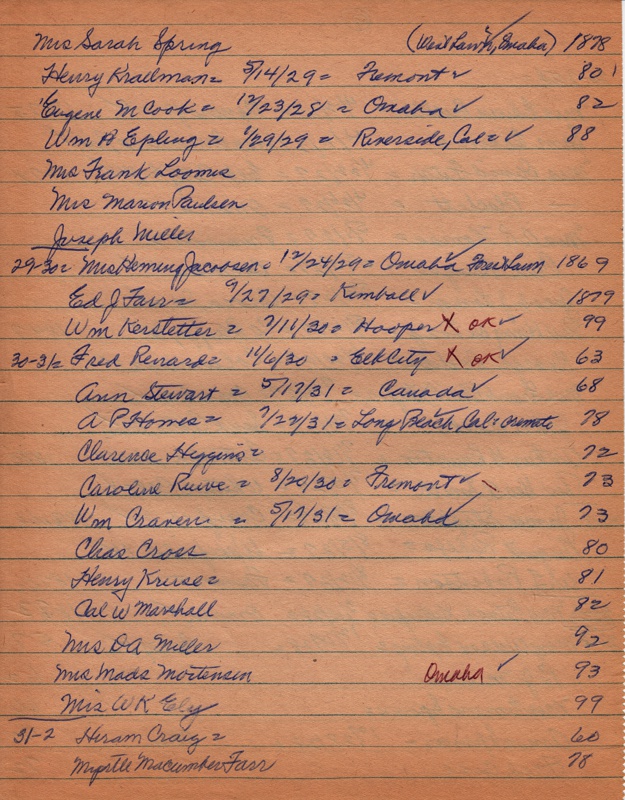 Mrs Sarah Spring (West Lawn, Omaha) 1878
Henry Krailman = 5/14/29 = Fremont ✓ 80
Eugene M Cook = 12/23/28 = Omaha ✓ 82
Wm B Epling = 1/29/29 = Riverside, Cal = ✓ 88
Mrs Frank Loomis
Mrs Marion Paulsen
Joseph Miller
29-30 = Mrs Heming Jacobsen = 12/24/29 = Omaha ✓ Forest Lawn 1869
Ed J Farr = 9/27/29 = Kimball ✓ 1879
Wm Kerstetter = 7/11/30 = Hooper X OK ✓ 99
30-31 = Fred Renard = 11/6/30 = Elk City X OK ✓ 63
Ann Stewart = 5/17/31 = Canada ✓ 68
A P Homes = 7/22/31 = Long Beach, Cal = cremate 78
Clarence Higgins = 72
Caroline = 8/20/30 = Fremont ✓ 73
Wm Craven = 5/17/31 = Omaha ✓ 73
Chas Cross 80
Henry Kruse = 81
Cal W Marshall 82
Mrs DA Miller 92
Mrs Mads Mortensen Omaha ✓ 93
Mrs W K Ely 99
31-2 Hiram Craig = 60
Myrtle Macumber Farr 78